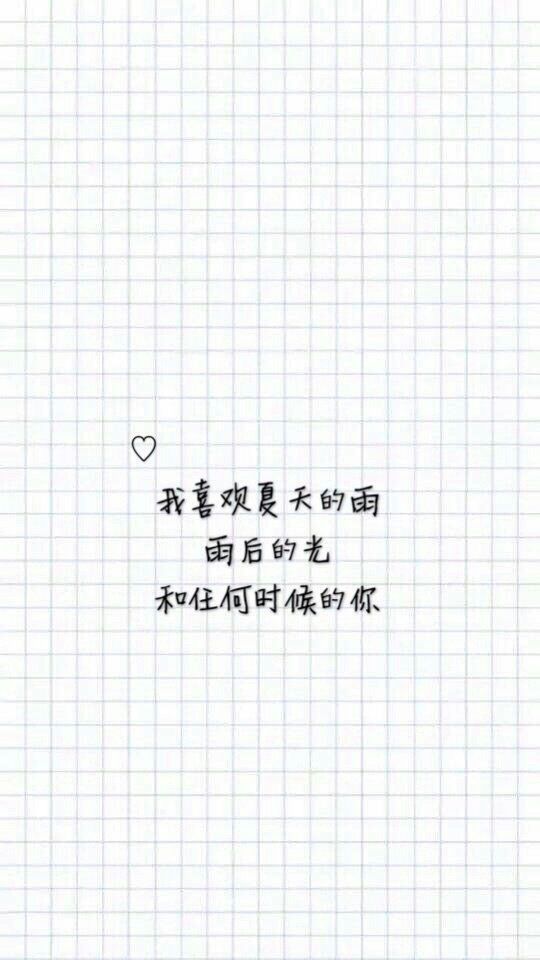 ♡
我喜欢夏天的雨
雨后的光
和任何时候的你